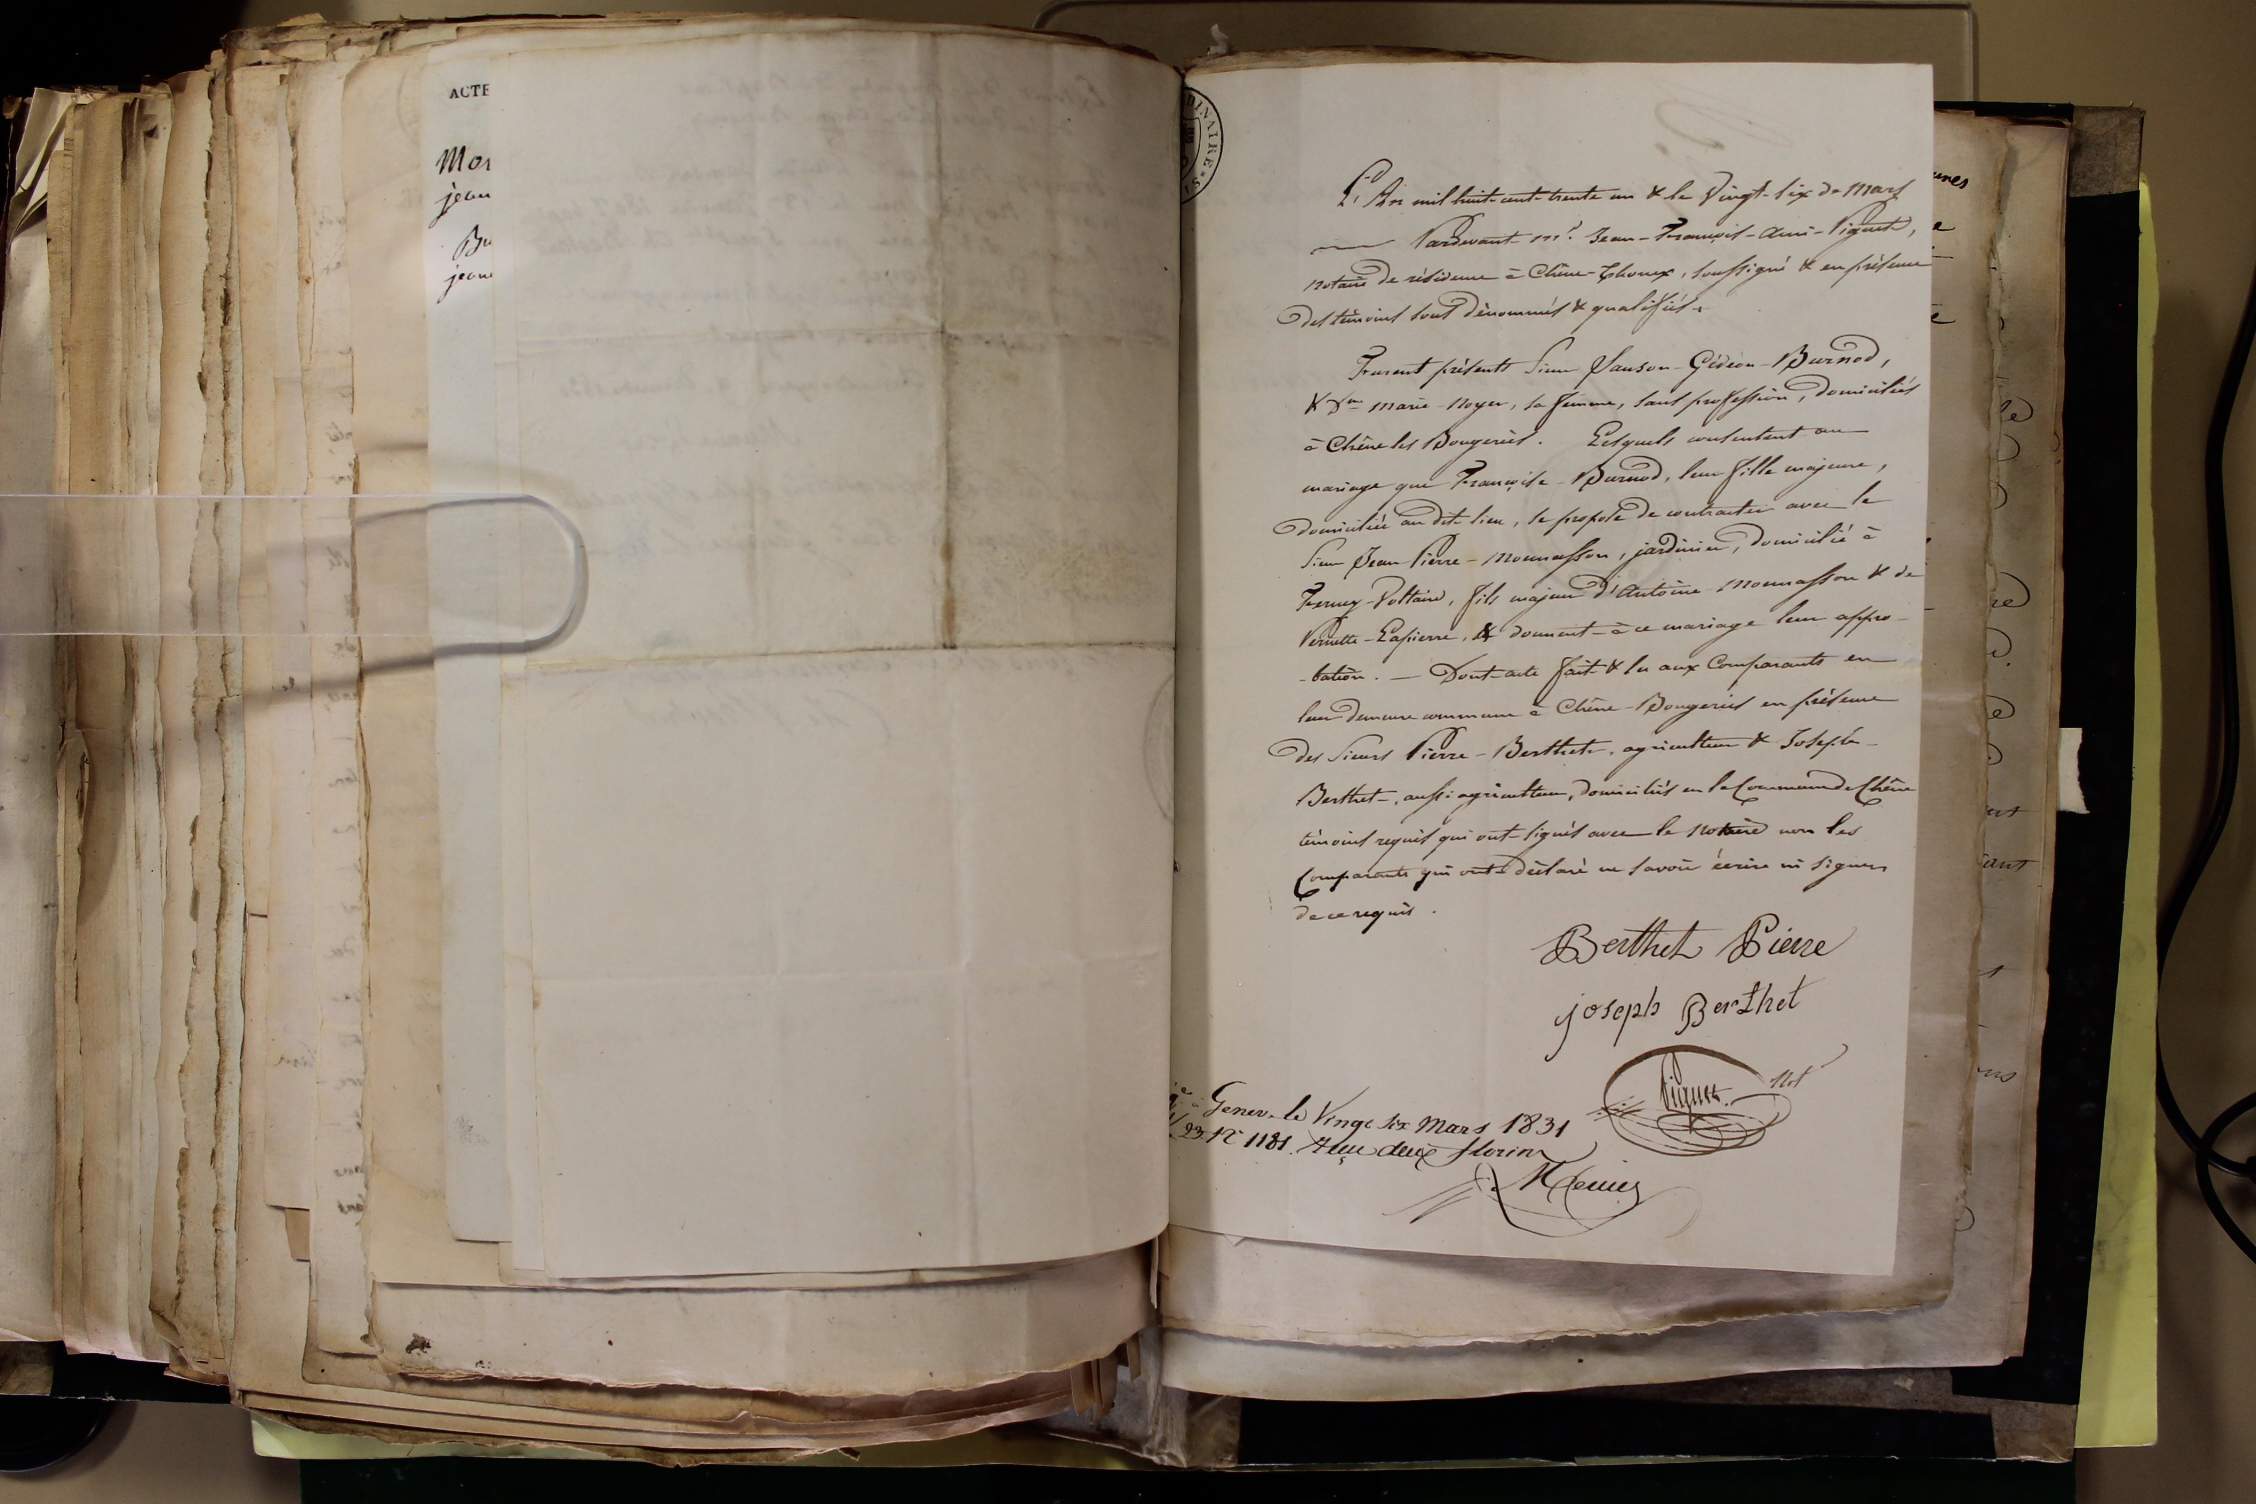 ACTE
Mor
jean
Bu
jean
DINAIRE
L'An mil huit-cent-trente un & le Vingt-six de Mars
Pardevant Mr. Jean-François-Ami-Viguet,
Notaire de résidence à Chêne-Thonex, soussigné & en présence
des témoins sous dénommés & qualifiés.
Furent présents Sieur Sanson-Gédéon-Burnod,
& Dme Marie Noyer, sa femme, sans profession, domiciliés
à Chêne les Bougeries. Lesquels consentent au
mariage que Françoise-Burnod, leur fille majeure,
domiciliée au dit lieu, se propose de contracter avec le
Sieur Jean Pierre-Monnasson, jardinier, domicilié à
Ferney-Voltaire, fils majeur d'Antoine Monnasson & de
Pernette-Lapierre, & donnent à ce mariage leur appro-
-bation. — Dont-acte fait & lu aux Comparants en
leur demeure commune à Chêne-Bougeries en présence
des Sieurs Pierre-Berthet, agriculteur & Joseph-
Berthet, aussi agriculteur, domiciliés en la Commune de Chêne
témoins requis qui ont signés avec le Notaire non les
Comparants qui ont déclaré ne savoir écrire ni signer
de ce requis.
Berthet Pierre
joseph Berthet
Viguet Not
Genev. le Vingt six Mars 1831
23. Nº 1181. Reçu deux florins